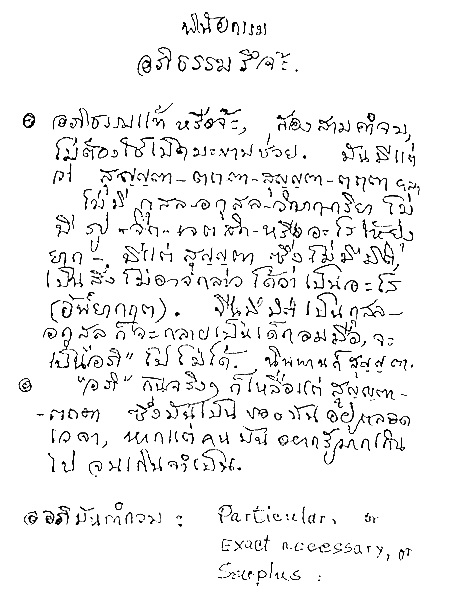 พินัยกรรม
อภิธรรม รึจ๊ะ.
อภิธรรมแท้ หรือจ๊ะ, ต้องสามคำจบ,
ไม่ต้องใช้เปิดมะพานช่วย. มันมีแต่
ว่า สุญญตา-ตถตา-สุญญตา-ตถตา
ไม่มี กุศล-อกุศล-วิบาก-กริยา ไม่
มี รูป-จิต-เจตสิก-หรืออะไรให้ยุ่ง
ยาก-, มีแต่ สุญญตา ซึ่งไม่มีมิติ
เป็นสิ่งไม่อาจกล่าวได้ว่าเป็นอะไร
(อัพ๎ยากฤต). ขืนมีมิติ เป็นกุศล-
อกุศล ก็จะกลายเป็นเด็กอมมือ, จะ
เป็น "อภิ" ไปไม่ได้. นิพพานก็สุญญตา.
"อภิ" กันจริงๆ ก็เหลือแต่ สุญญตา-
-ตถตา ซึ่งมันเป็นของมันอยู่ตลอด
เวลา, หากแต่คนมันอยากรู้มากเกิน
ไป จนเกินจำเป็น.
อภิมันกำกวม : Particular, or
Exact necessary, or
Surplus :